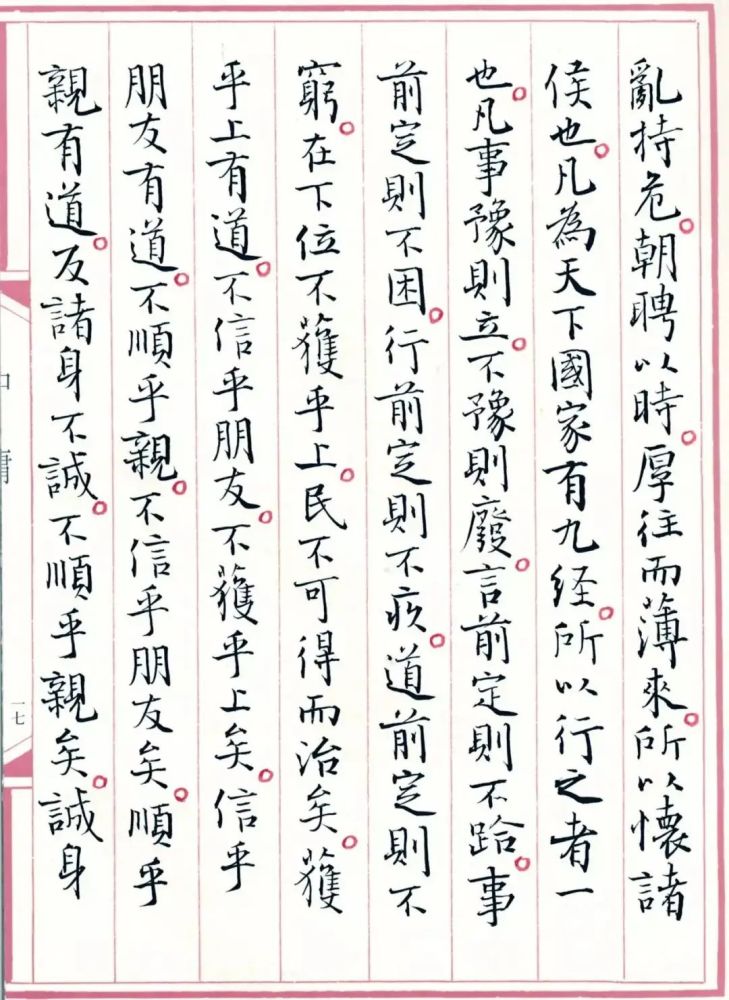 亂持危。朝聘以時。厚往而薄來。所以懷諸
侯也。凡為天下國家有九経。所以行之者一
也。凡事豫則立。不豫則廢。言前定則不跲。事
前定則不困。行前定則不疚。道前定則不
窮。在下位不獲乎上。民不可得而治矣。獲
乎上有道。不信乎朋友。不獲乎上矣。信乎
朋友有道。不順乎親。不信乎朋友矣。順乎
親有道。反諸身不誠。不順乎親矣。誠身
一七